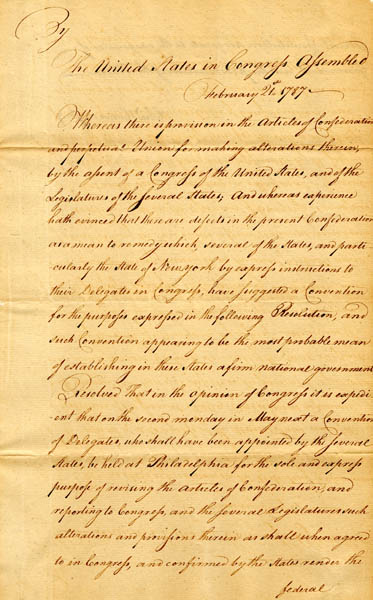 By
The United States in Congress Assembled
February 21st 1787
Whereas there is provision in the Articles of Confederation
and perpetual Union for making alterations therein,
by the assent of a Congress of the United States, and of the
Legislatures of the several States; And whereas experience
hath evinced that there are defects in the present Confederation
as a mean to remedy which several of the States, and parti-
cularly the State of New York by express instructions to
their Delegates in Congress, have suggested a Convention
for the purposes expressed in the following Resolution, and
such Convention appearing to be the most probable mean
of establishing in these States a firm national government
Resolved That in the opinion of Congress it is expedi-
ent that on the second monday in May next a Convention
of Delegates, who shall have been appointed by the several
States, be held at Philadelphia for the sole and express
purpose of revising the Articles of Confederation, and
reporting to Congress, and the several Legislatures such
alterations and provisions therein as shall when agreed
to in Congress, and confirmed by the States render the
federal